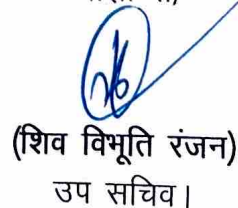 (शिव विभूति रंजन)
उप सचिव।